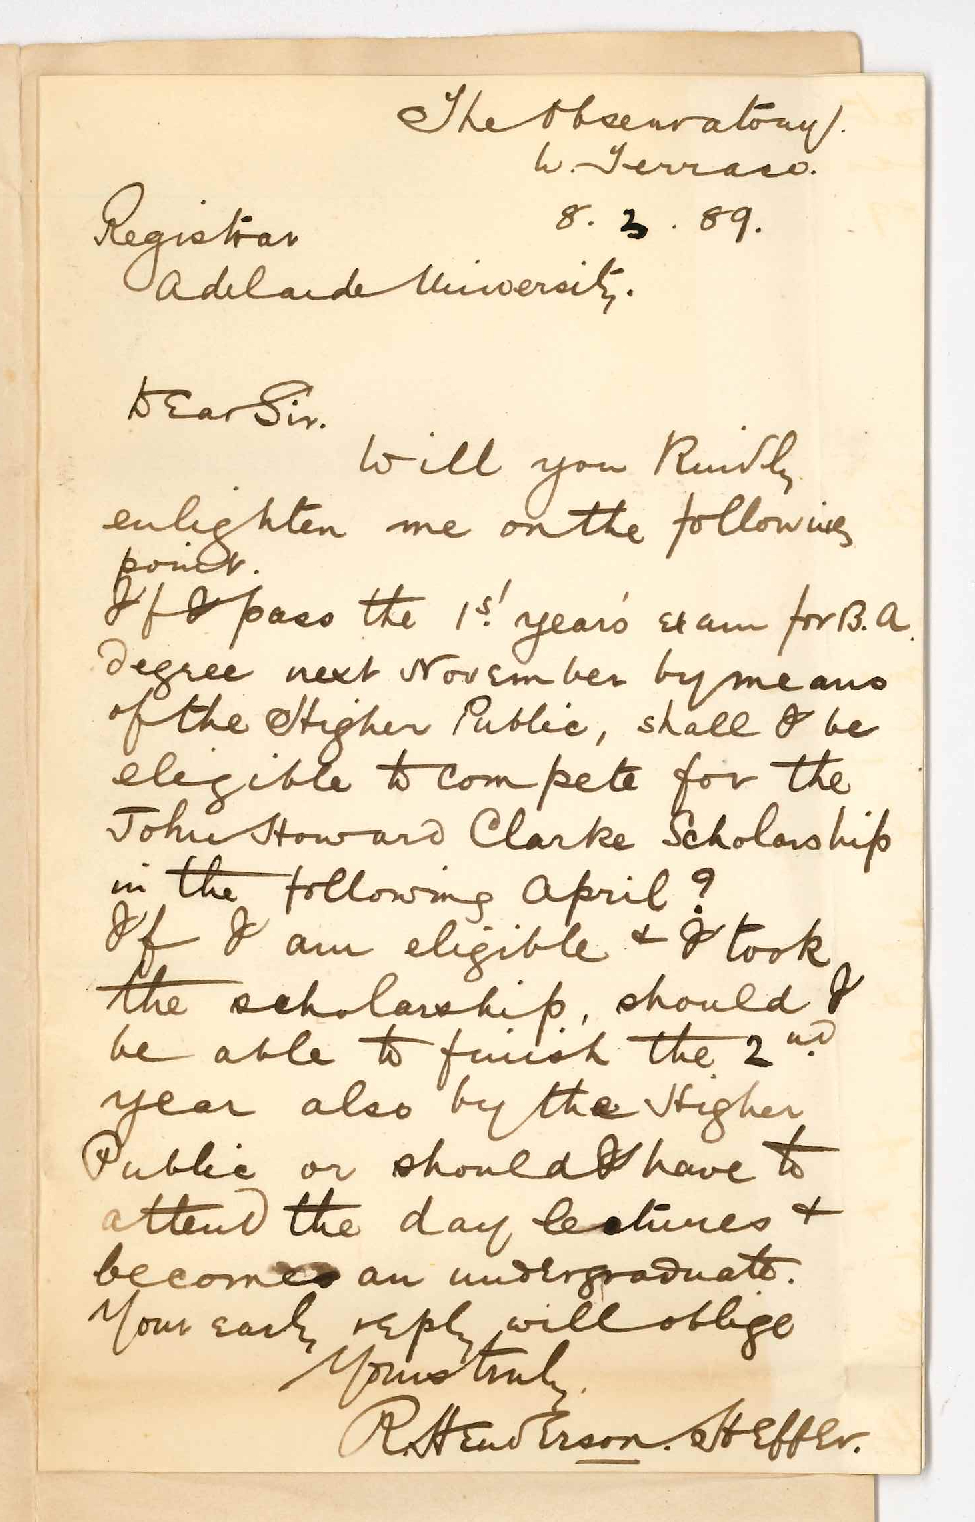 The Observatory.
W. Terrace.
8. 3. 89.
Registrar
Adelaide University.
Dear Sir.
Will you Kindly
enlighten me on the following
point.
If I pass the 1st. year's exam for B.A.
degree next November by means
of the Higher Public, shall I be
eligible to compete for the
John Howard Clarke Scholarship
in the following April?
If I am eligible + I took
the scholarship, should I
be able to finish the 2nd.
year also by the Higher
Public or should I have to
attend the day lectures +
become an undergraduate.
Your early reply will oblige
Yours truly,
R. Henderson. Heffer.